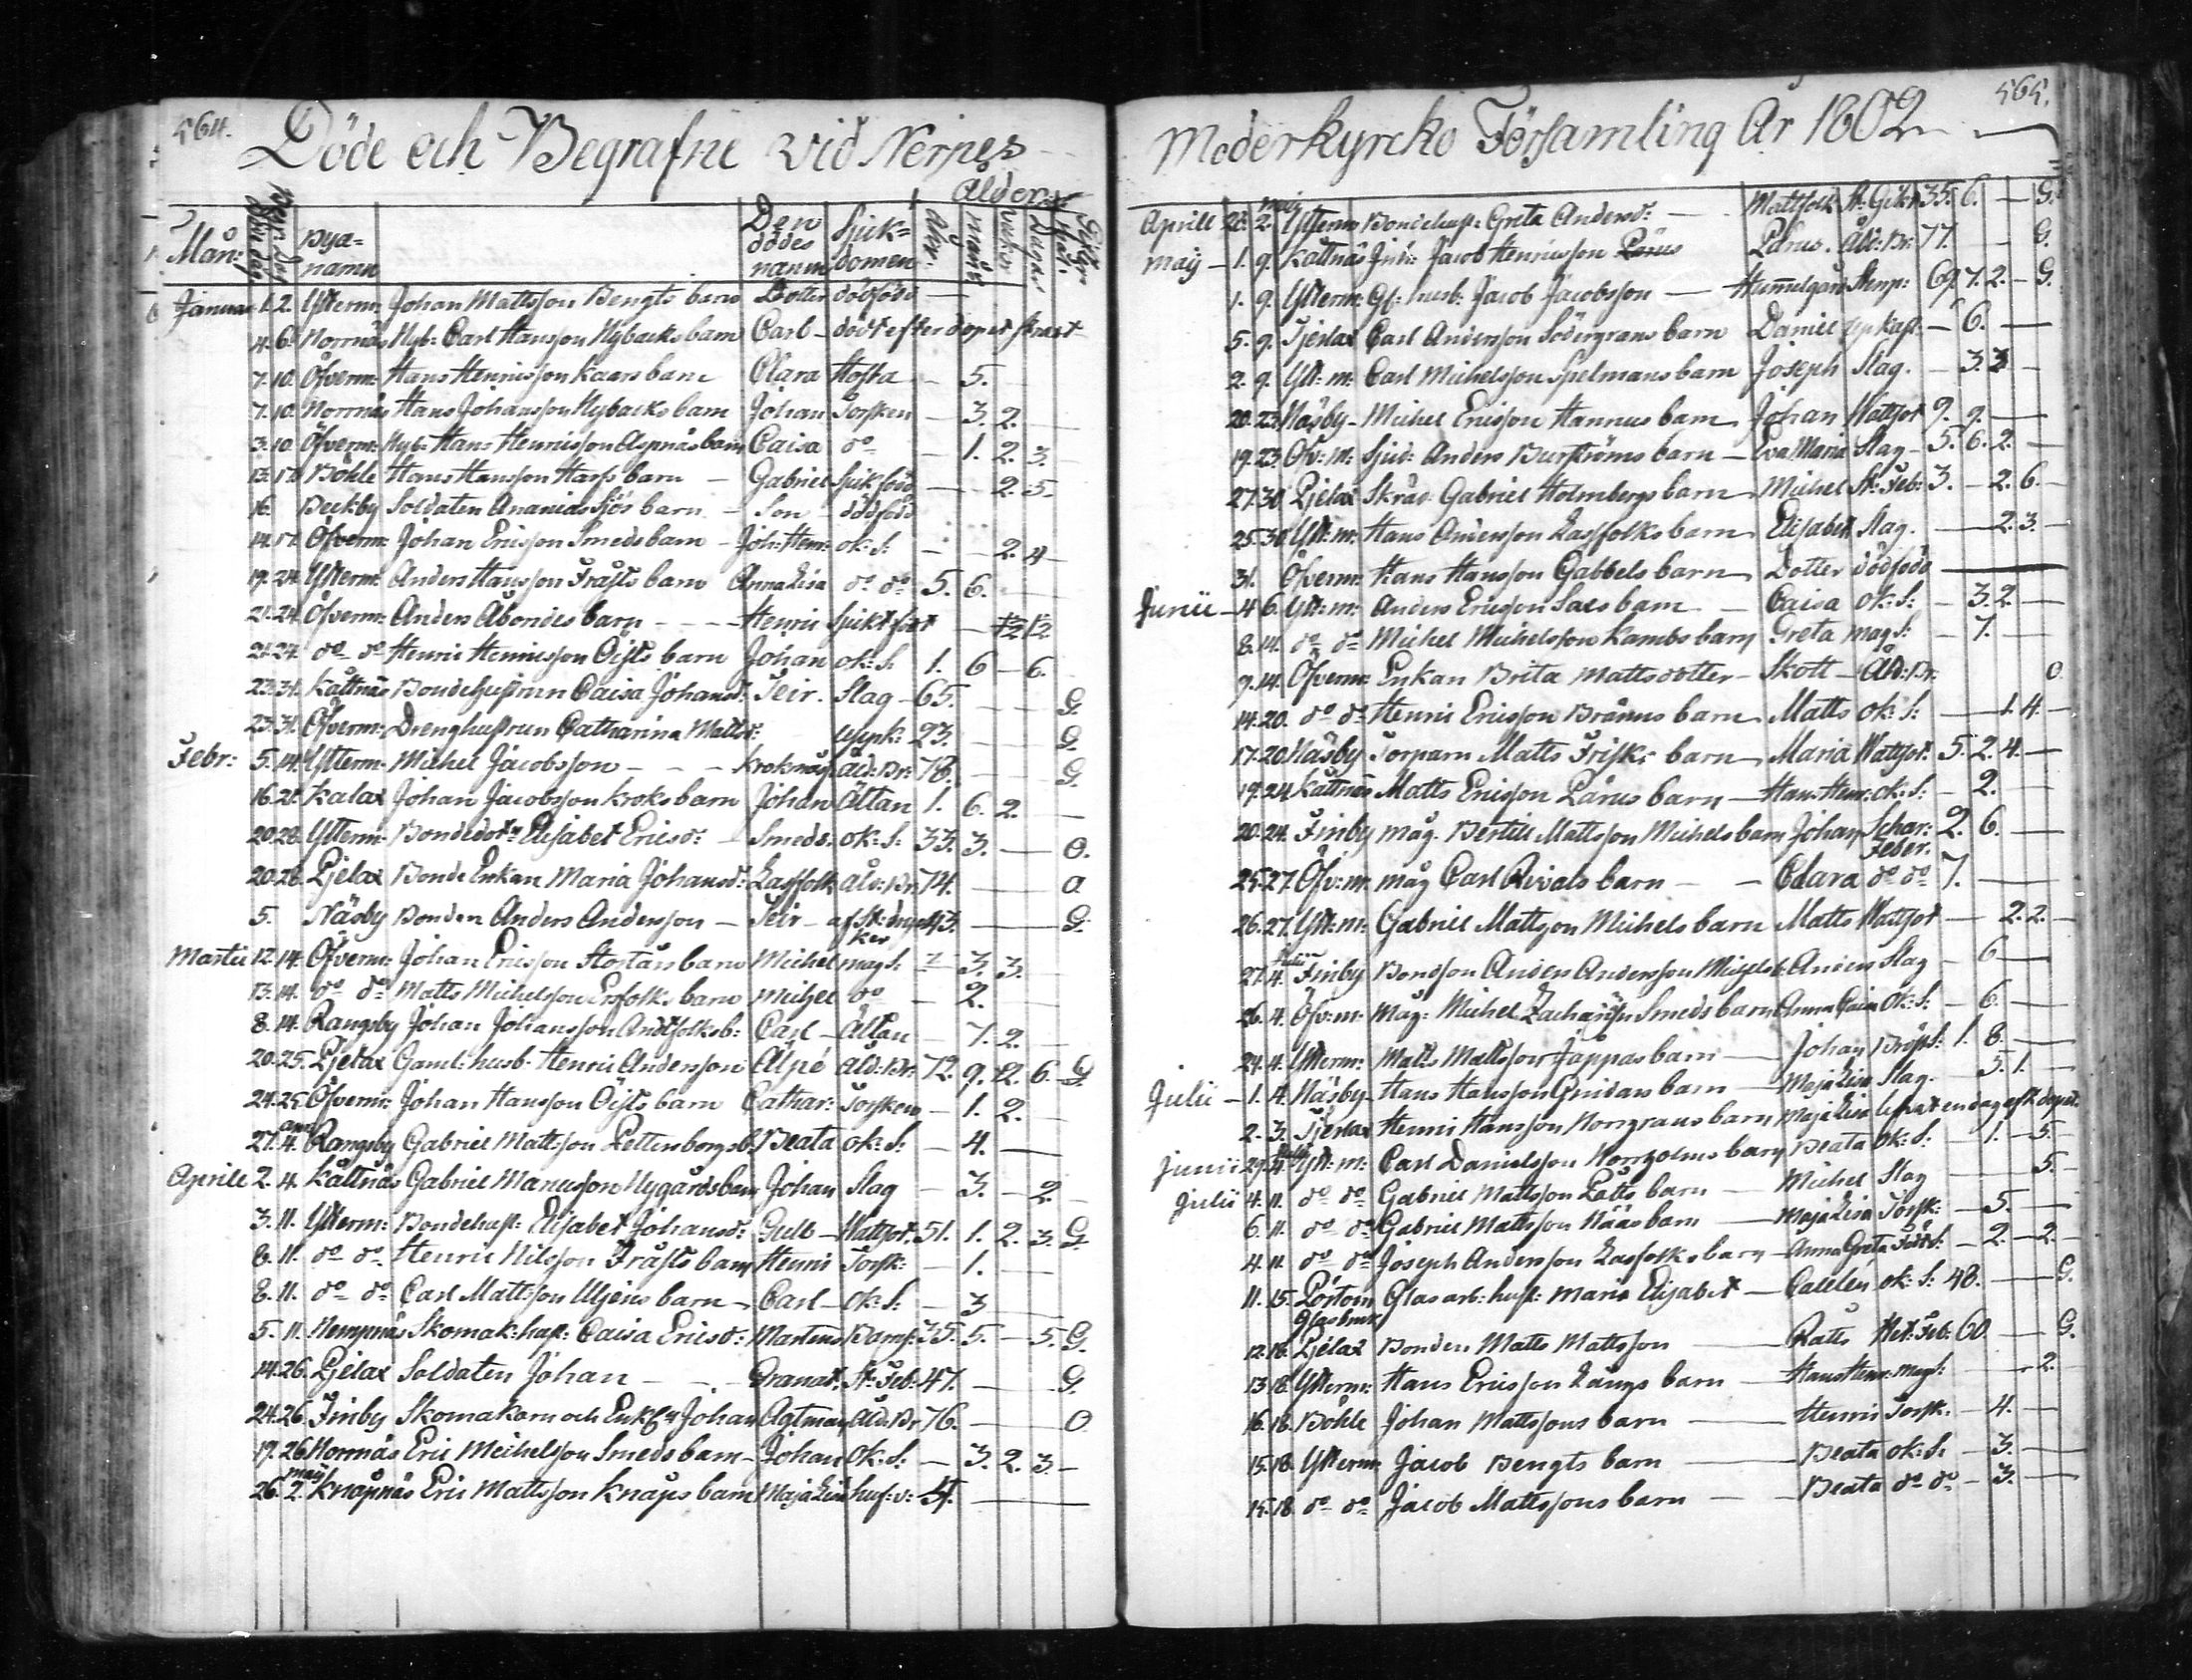 564.
Döde och Begrafne vid Nerpes
Ålder
Mån: Bya= namn Den dödes namn Sjuk= domen Åhr. Mån: Vekor Dagar
Januar 1. 2. Ytterm: Johan Mattsson Bengts barn Dotter dödfödd —
4. 6. Norrnäs Nyb: Carl Hansson Nybacks barn Carl – dödt efter dopet straxt
7. 10. Öfverm: Hans Henricsson Kaars barn Clara Hosta – 5.
7. 10. Norrnäs Hans Johansson Nybacks barn Johan Torsken – 3. 2.
3. 10. Öfverm: Nyb: Hans Henricsson Aspnäs barn Caisa do – 1. 2. 3.
13. 17. Bohle Hans Hansson Harfs barn – Gabriel Sjuk född – – 2. 5.
16. Beckby Soldaten Ananias Sjös barn – Son dödfödd
14. 17. Öfverm: Johan Ericsson Smeds barn – Joh: Henr: ok: S: – – 2. 4
19. 24. Ytterm: Anders Hansson Frästs barn Anna Lisa do do 5. 6.
21. 24. Öfverm: Anders Åbondes barn – – – Henric Sjukt födt –
21. 24. do do Henric Henricsson Öists barn Johan ok: S: 1. 6 – 6.
23. 31. Kåttnäs Bondehustrun Caisa Johansd: Teir. Slag – 65. G.
23. 31. Öfverm: Drenghustrun Catharina Mattsd: 23. G.
Febr: 5. 14. Ytterm: Michel Jacobsson – – – Kroknäs Åld: Br: 78. G.
16. 21. Kalax Johan Jacobsson Kroks barn Johan Ältan 1. 6. 2.
20. 28. Ytterm: Bondedottr Elisabet Ericsd: – Smeds. ok: S: 33. 3. – O.
20. 28. Pjelax Bonde Enkan Maria Johansd: Lassfolk Åld: Br. 74. O
5. Näsby Bonden Anders Andersson – Teir – 43. G.
Martii 12. 14. Öfverm: Johan Ericsson Storstårs barn Michel mag S: 3. 3.
13. 14. do do Matts Michelsson Ersfolks barn Michel do – 2.
8. 14. Rangsby Johan Johansson Andtfolks b: Carl – Ältan – 7. 2.
20. 25. Pjelax Gaml: husb: Henric Andersson Alpé Åld: Br: 72. 9. 2. 6. G
24. 25. Öfverm: Johan Hansson Öists barn Cathar: Torsken – 1. 2.
apr.
27. 4. Rangsby Gabriel Mattsson Pettersborgs b. Beata ok: S: – 4.
Aprile 2. 4. Kåttnäs Gabriel Manusson Nygårds barn Johan Slag – 3. – 2.
3. 11. Ytterm: Bondehust: Elisabet Johansd: Gull – Wattsot. 51. 1. 2. 3. G.
8. 11. do do Henric Nilsson Frästs barn Henric Torsk: – 1.
8. 11. do do Carl Mattsson Uljens barn – Carl – ok: S: – 3
5. 11. Nempnäs Skomak: hust: Caisa Ericsd: Martens Ramp: 35. 5. – 5. G.
14. 26. Pjelax Soldaten Johan – – – Granat. St: Feb: 47. – G.
24. 26. Finby Skomakarn och Enkl: Johan Agtman Åld: Br 76. – O
17. 26. Norrnäs Eric Michelsson Smeds barn – Johan ok: S: – 3. 2. 3.
maij
26. 2. Knåpnäs Eric Mattsson Knåps barn Maja Lisa 4.
565.
Moderkyrcko Församling År 1802
maij
Aprill 2. Ytterm Bondehust: Greta Andersd: – Mattfolk 35. 6. – G.
Maij – 1. 9. Kåttnäs Jacob Henricsson Pärus Pärus. Åld: Br: 77. – G.
1. 9. Ytterm: Gl: husb: Jacob Jacobsson – 69. 7. 2. – G.
5. 9. Tjerlax Carl Andersson Södergrans barn Daniel – 6.
2. 9. Ytt: m: Carl Michelsson Spelmans barn Joseph Slag. – 3. 3
20. 23. Näsby – Michel Ericsson Hannus barn Johan Wattsot 9. 9.
19. 23. Öfv: m: Sjud: Anders Burströms barn – Eva Maria Slag – 5. 6. 2.
27. 30. Pjelax Skräd: Gabriel Holmbergs barn Michel St: Feb: 3. – 2. 6.
25. 30. Ytt: m: Hans Andersson Lassfolks barn Elisabet Slag. – 2. 3.
31. Öfverm: Hans Hansson Gabbels barn Dotter dödfödd
Junii – 4. 6. Ytt: m: Anders Ericsson barn – Caisa ok: S: – 3. 2.
8. 14. do do Michel Michelsson Kambs barn Greta mag S: – 7.
7. 14. Öfverm: Enkan Brita Mattsdotter – Skott – Åld: Br: O
14. 20. do do Henric Ericsson Bränns barn Matts ok: S: – 1. 4.
17. 20. Näsby Torparn Matts Frisks barn Maria Wattsot. 5. 2. 4.
19. 24. Kåttnäs Matts Ericsson Pärus barn – Hans Henr: ok: S: – 2.
20. 24. Finby måg. Bertill Mattsson Michels barn Johan Schar: Feber. 2. 6.
25. 27. Öfv: m: måg Carl Rivals barn – – Clara do do 7.
26. 27. Ytt: m: Gabriel Mattsson Michels barn Matts Wattsot – 2. 2.
Julii
27. 4. Finby Bondson Anders Andersson Anders Slag – 6
26. 4. Öfv: m: Måg: Michel Smeds barn Anna Caisa ok: S: – 6.
24. 4. Ytterm: Matts Mattsson Jäppas barn – Johan Bröst S: 1. 8.
Julii – 1. 4. Näsby Hans Hansson barn – Maja Lisa Slag. – 5. 1.
2. 3. Tjerlax Henric Hansson Norrgrans barn Maja Lisa lefvat en dag eft. dopet
Junii 29. 4. Ytt: m: Carl Danielsson Norrholms barn Beata ok: S: – 1. – 5.
Julii 4. 11. do do Gabriel Mattsson barn – Michel Slag – 5.
6. 11. do do Gabriel Mattsson Nääs barn – Maja Lisa Torsk: – 5.
4. 11. do do Joseph Andersson Lassfolks barn – Anna Greta – 2. – 2.
11. 15. Pörtom Glasbruk Glas arb: hust: Maria Elisabet – ok: S: 48. – G.
12. 18. Pjelax Bonden Matts Mattsson – Råtts Het: Feb: 60. – G.
13. 18. Ytterm: Hans Ericsson Långs barn – Hans Henr: mag S: – 2.
16. 18. Bohle Johan Mattssons barn – Henric Torsk. – 4.
15. 18. Ytterm: Jacob Bengts barn – Beata ok: S: – 3.
15. 18. do do Jacob Mattssons barn – Beata do do – 3.